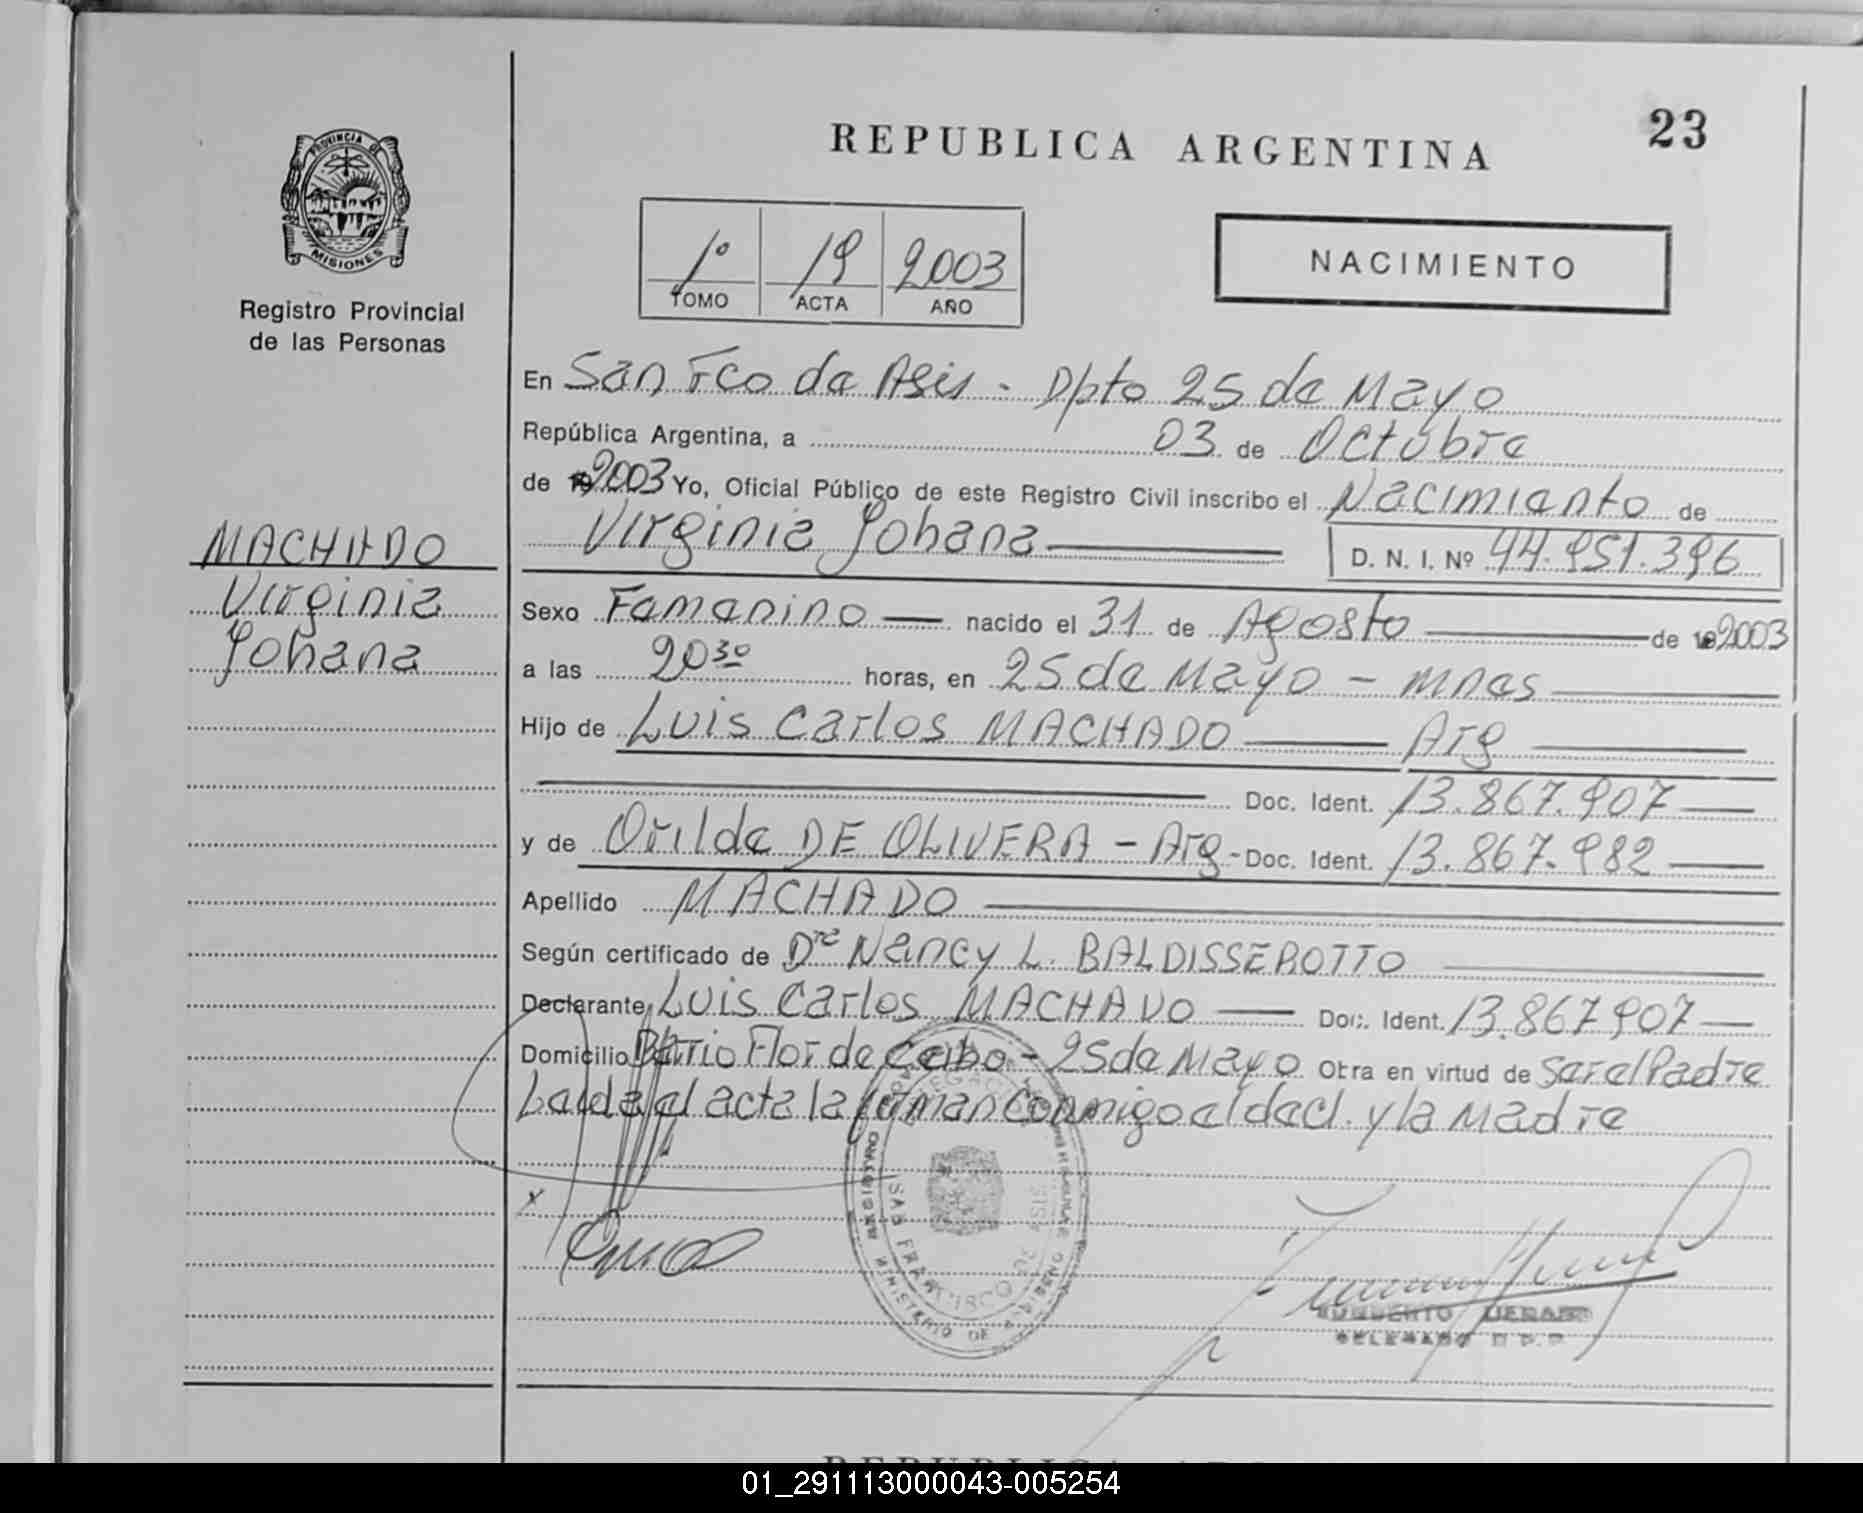 REPUBLICA ARGENTINA
23
PROVINCIA DE
MISIONES
Registro Provincial
de las Personas
1º 19 2003
TOMO ACTA AÑO
NACIMIENTO
En San Fco de Asis - Dpto 25 de Mayo
República Argentina, a 03 de Octubre
de 2003 Yo, Oficial Público de este Registro Civil inscribo el Nacimiento de
Virginia Johana D. N. I. Nº 44.951.396
MACHADO
Virginia
Johana
Sexo Femenino nacido el 31 de Agosto de 2003
a las 20 30 horas, en 25 de Mayo - Mnes
Hijo de Luis Carlos MACHADO Arg
Doc. Ident. 13.867.907
y de Orilde DE OLIVERA - Arg - Doc. Ident. 13.867.982
Apellido MACHADO
Según certificado de Dra Nancy L. BALDISSEROTTO
Declarante Luis Carlos MACHADO Doc. Ident. 13.867907
Domicilio Barrio Flor de Ceibo - 25 de Mayo Obra en virtud de Ser el Padre
Leida el acta la firman conmigo el decl. y la Madre
REGISTRO
SAN FRANCISCO DE ASIS
MINISTERIO DE
DELEGADO R P.P
REPUBLICA
01_291113000043-005254